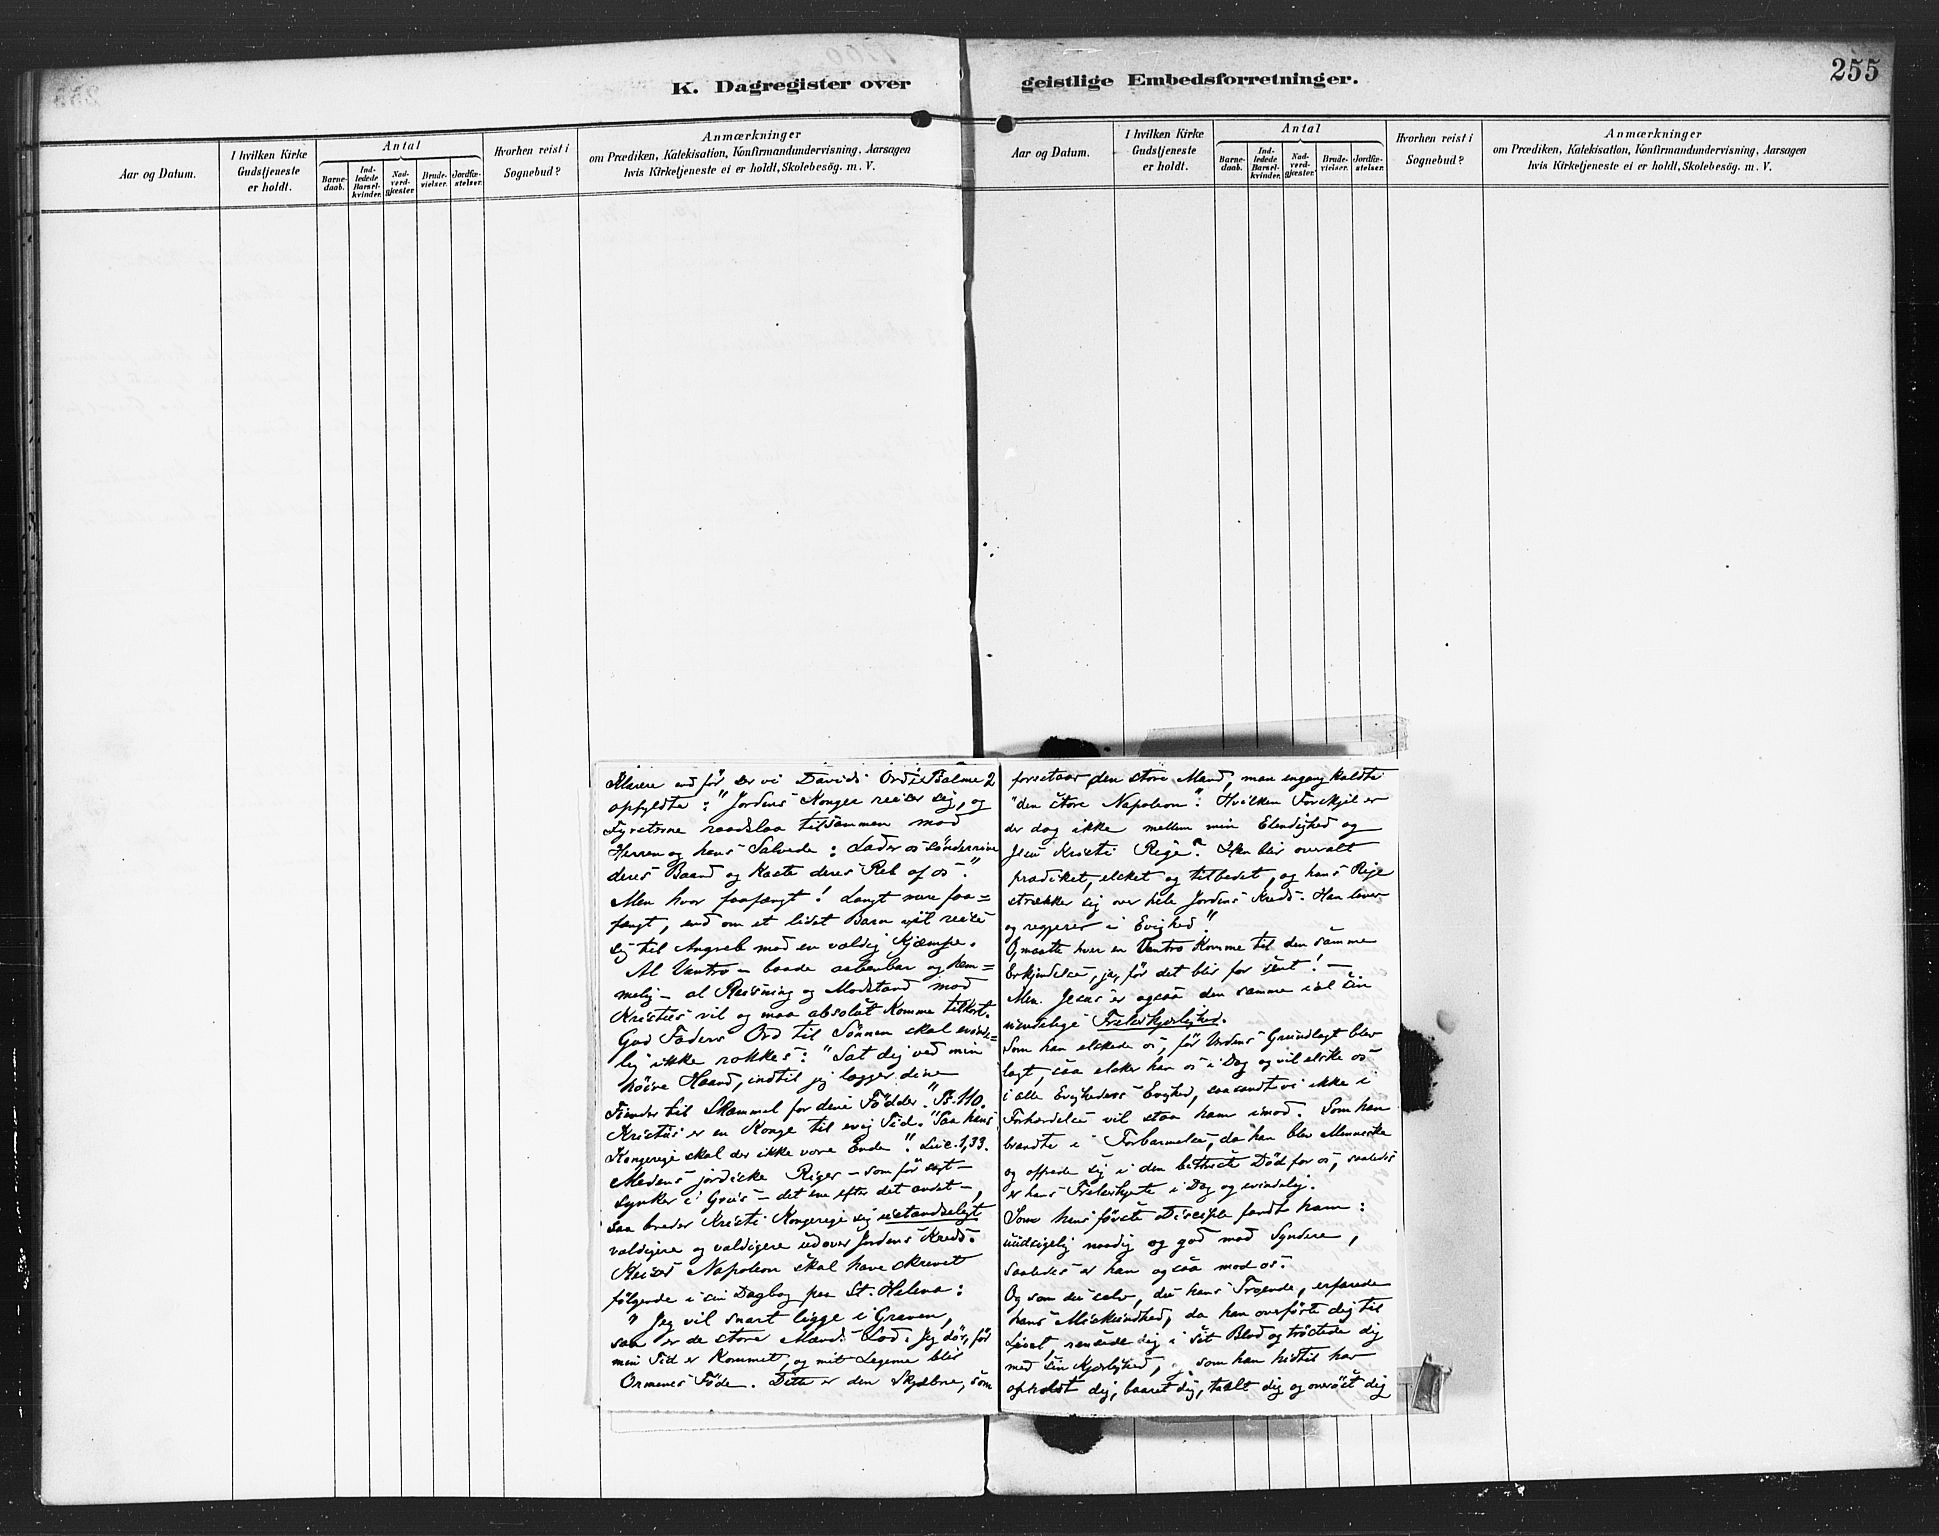 K. Dagregister over geistlige Embedsforretninger.
255
Aar og Datum.
I hvilken Kirke Gudstjeneste er holdt.
Antal
Barne-daab.
Ind-ledede Barsel-kvinder.
Nad-verd-gjæster.
Brude-vielser.
Jordfæ-stelser.
Hvorhen reist i Sognebud?
Anmærkninger
om Prædiken, Katekisation, Konfirmandundervisning, Aarsagen
hvis Kirketjeneste ei er holdt, Skolebesög. m. V.
Aar og Datum.
I hvilken Kirke Gudstjeneste er holdt.
Antal
Barne-daab.
Ind-ledede Barsel-kvinder.
Nad-verd-gjæster.
Brude-vielser.
Jordfæ-stelser.
Hvorhen reist i Sognebud?
Anmærkninger
om Prædiken, Katekisation, Konfirmandundervisning, Aarsagen
hvis Kirketjeneste ei er holdt, Skolebesög. m. V.
Klarere end før ser vi Davids Ord i Salme 2
opfyldte: "Jordens Konger reiser sig, og
Fyrsterne raadslaa tilsammen mod
Herren og hans Salvede: Lader os sønderrive
deres Baand og kaste deres Reb af os".
Men hvor faafængt! Langt mere faa=
fængt, end om et lidet Barn vil reise
sig til Angreb mod en vældig Kjæmpe.
Al Vantro – baade aabenbar og hem=
melig – al Reisning og Modstand mod
Kristus vil og maa absolut komme tilkort.
Gud Faders Ord til Sønnen skal evinde=
lig ikke rokkes: "Sæt dig ved min
høire Haand, indtil jeg lægger dine
Fiender til Skammel for dine Fødder". Ps. 110.
Kristus er en Konge til evig Tid. "Paa hans
Kongerige skal der ikke være Ende". Luc. 1,33.
Medens jordiske Riger – som før sagt –
synker i Grus – det ene efter det andet –,
saa breder Kristi Kongerige sig uistandseligt
vældigere og vældigere udover Jordens Kreds.
Keiser Napoleon skal have skrevet
følgende i sin Dagbog paa St. Helena:
"Jeg vil snart ligge i Graven,
saa er de store Mænds Lod. Jeg dør, før
min Tid er kommet, og mit Legeme blir
Ormenes Føde. Dette er den Skjæbne, som
forestaar den store Mand, man engang kaldte
"den store Napoleon". Hvilken Forskjel er
der dog ikke mellem min Elendighed og
Jesu Kristi Rige? Han blir overalt
prædiket, elsket og tilbedet, og hans Rige
strækker sig over hele Jordens Kreds. Han lever
og regjerer i Evighed".
O, maatte hver en Vantro komme til den samme
Erkjendelse, ja, før det blir for sent! –
Men Jesus er ogsaa den samme i al sin
uendelige Frelserkjærlighed.
Som han elskede os, før Verdens Grundlagt blev
lagt, saa elsker han os i Dag og vil elske os
i alle Evigheders Evighed, saasandt vi ikke i
Forhærdelse vil staa ham imod. Som han
brændte i Forbarmelse, da han blev Menneske
og ofrede sig i den bitreste Død for os, saaledes
er hans Frelserhjerte i Dag og evindelig.
Som hans første Disciple fandt ham:
uudsigelig naadig og god mod Syndere,
saaledes er han ogsaa mod os.
Og som du selv, du hans Troende, erfarede
hans Miskundhed, da han overførte dig til
Livet, rensede dig i sit Blod og trøstede dig
med sin Kjærlighed, og som han hidtil har
opholdt dig, baaret dig, taalt dig og overøst dig